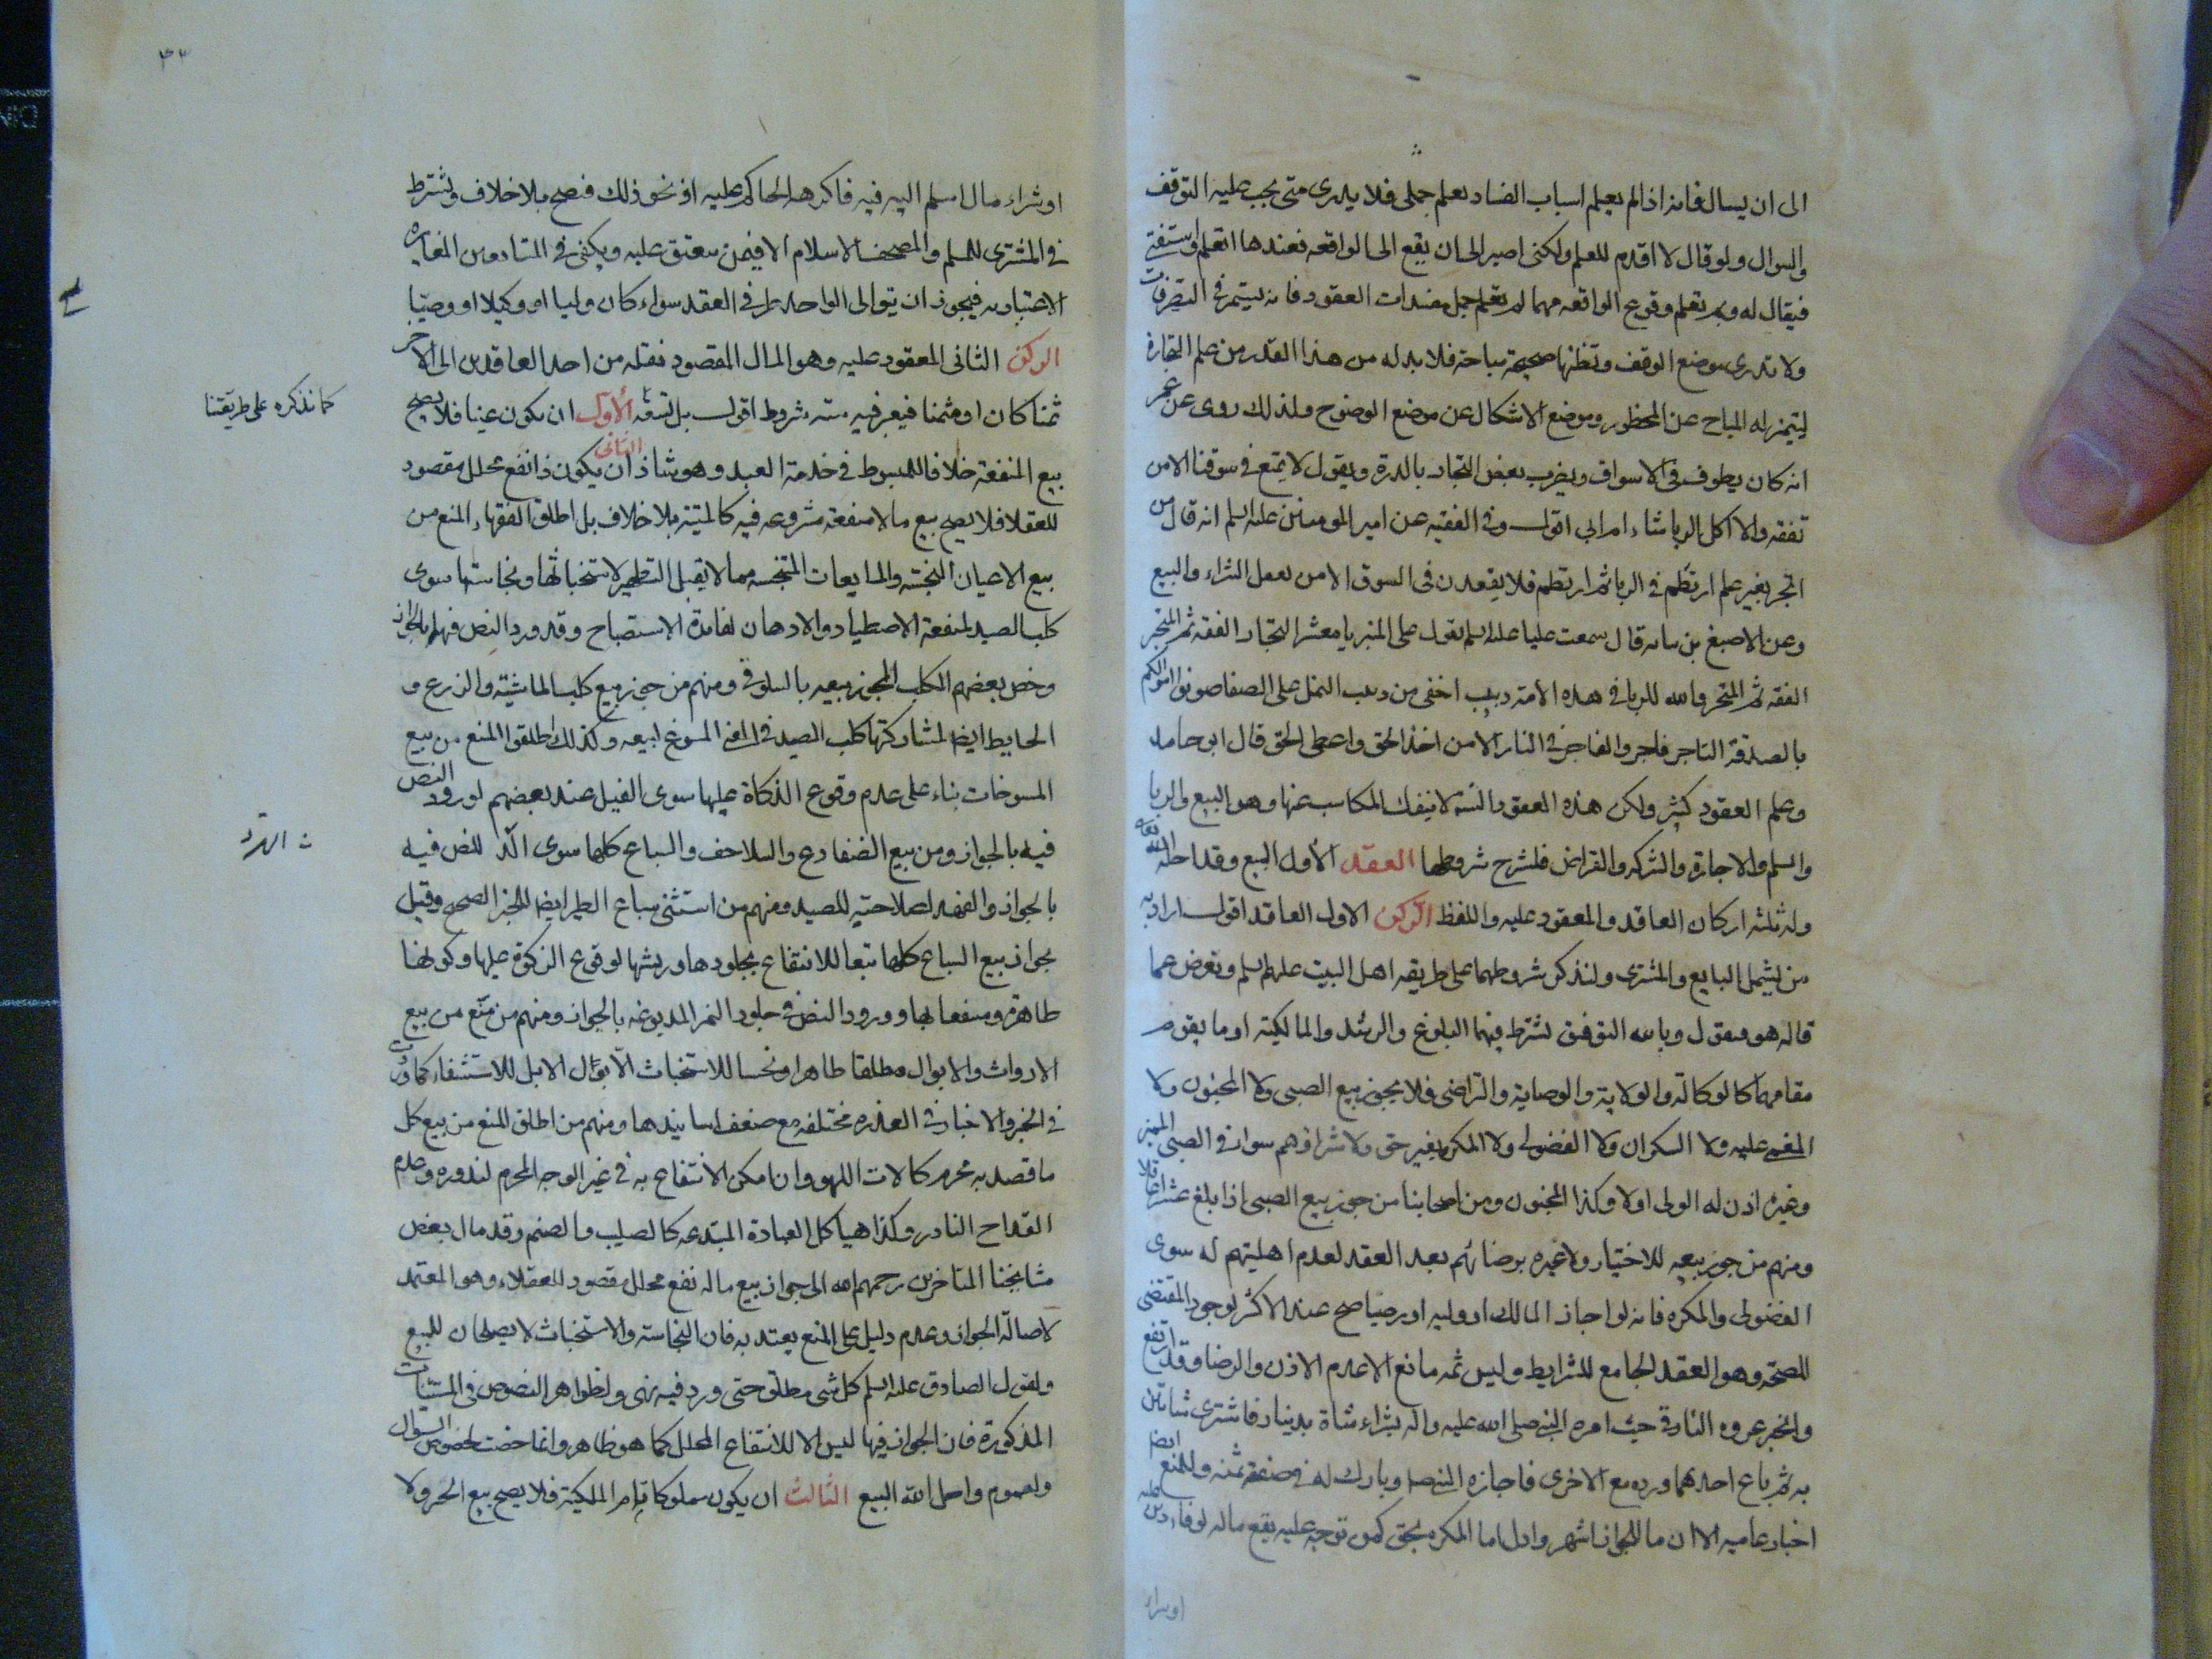 الى ان يسال فانه اذا لم يعلم اسباب الفساد بعلم جملى فلا يدرى متى يجب عليه التوقف
والسوال ولو قال لا اقدم للعلم ولكنى اصبر الى ان يقع الى الواقعه فعندها اتعلم واستفتى
فيقال له وبم تعلم وقوع الواقعه مهما لم تعلم جمل مفسدات العقود فانه يستمر فى التصرفات
ولا تدرى موضع الوقف وتظنها صحيحة مباحة فلا بد له من هذا القدر من علم التجارة
ليتميز له المباح عن المحظور وموضع الاشكال عن موضع الوضوح ولذلك روى عن عمر
انه كان يطوف فى الاسواق ويضرب بعض التجار بالدرة ويقول لا يبيع فى سوقنا الا من
تفقه والا اكل الربا شاء ام ابى اقول وفى الفقيه عن امير المومنين عليه السلم انه قال من
اتجر بغير علم ارتطم فى الربا ثم ارتطم فلا يقعدن فى السوق الا من يعقل الشراء والبيع
وعن الاصبغ بن نباته قال سمعت عليا عليه السلم يقول على المنبر يا معشر التجار الفقه ثم المتجر
الفقه ثم المتجر والله للربا فى هذه الامة دبيب اخفى من دبيب النمل على الصفا صونوا اموالكم
بالصدقة التاجر فاجر والفاجر فى النار الا من اخذ الحق واعطى الحق قال ابو حامد
وعلم العقود كثير ولكن هذه العقود الستة لا ينفك المكاسب عنها وهو البيع والربا
والسلم والاجارة والشركه والقراض فلنشرح شروطها العقد الأول البيع وقد احله الله تعالى
وله ثلثه اركان العاقد والمعقود عليه واللفظ الركن الاول العاقد اقول اراد به
من يشمل البايع والمشترى ولنذكر شروطهما على طريقه اهل البيت عليهم السلم ونعرض عما
قاله هو فنقول وبالله التوفيق نشترط فيهما البلوغ والرشد والمالكية او ما يقوم
مقامها كالوكالة والولاية والوصاية والتراضى فلا يجوز بيع الصبى ولا المجنون ولا
المغمى عليه ولا السكران ولا الفضولى ولا المكره بغير حق ولا شراؤهم سواء فى الصبى المميز
وغيره اذن له الولى اولا وكذا المجنون ومن اصحابنا من جوز بيع الصبى اذا بلغ عشرا عاقلا
ومنهم من جوز بيعه للاختيار ولا عبره برضائهم بعد العقد لعدم اهليتهم له سوى
الفضولى والمكره فانه لو اجاز المالك او وليه او رضيا صح عند الاكثر لوجود المقتضى
للصحة وهو العقد الجامع للشرايط وليس ثمه مانع الا عدم الاذن والرضا وقد ارتفع
ولخبر عروه البارقى حيث امره النبى صلى الله عليه واله بشراء شاة بدينار فاشترى شاتين
به ثم باع احدهما ورده مع الاخرى فاجازه النبى ص وبارك له فى صفقة يمينه وللمنع ايضا
اخبار عاميه الا ان ما للجواز اشهر وادل اما المكره بحق كمن توجه عليه بيع ماله لوفاء دين عليه
او شراء
٣٣
او شراء مال اسلم اليه فيه فاكرهه الحاكم عليه او نحو ذلك فيصح بلا خلاف ونشترط
فى المشترى للمسلم والمصحف الاسلام الا فيمن ينعتق عليه ويكفى فى المتعاقدين المغايره
الاعتباريه فيجوز ان يتوالى الواحد طرفى العقد سواء كان وليا او وكيلا او وصيا
الركن الثانى المعقود عليه وهو المال المقصود نقله من احد العاقدين الى الاخر
ثمنا كان او مثمنا فيعتبر فيه سته شروط اقول بل تسعة الأول ان يكون عينا فلا يصح
كما نذكره على طريقتنا
بيع المنفعة خلافا للمبسوط فى خدمة العبد وهو شاذ الثانى ان يكون ذا نفع محلل مقصود
للعقلا فلا يصح بيع ما لا منفعة مشروعه فيه كالميتة بلا خلاف بل اطلق الفقهاء المنع من
بيع الاعيان النجسة والمايعات المتنجسه مما لا يقبل التطهير لاستخباثها ونجاستها سوى
كلب الصيد لمنفعة الاصطياد والادهان لفائدة الاستصباح وقد ورد النص فيهما بالجواز
وخص بعضهم الكلب المجوز بيعه بالسلوقى ومنهم من جوز بيع كلب الماشية والزرع و
الحايط ايضا لمشاركتها كلب الصيد فى المعنى المسوغ لبيعه وكذلك اطلقوا المنع من بيع
المسوخات بناء على عدم وقوع الذكاة عليها سوى الفيل عند بعضهم لورود النص
فيه بالجواز ومن بيع الضفادع والسلاحف والسباع كلها سوى الهر للنص فيه
بالجواز والفهد لصلاحيته للصيد ومنهم من استثنى سباع الطير ايضا للخبر الصحيح وقيل
بجواز بيع السباع كلها تبعا للانتفاع بجلودها وريشها لوقوع الزكوة عليها وكونها
طاهرة ومنتفعا بها وورود النص فى جلود النمر المدبوغه بالجواز ومنهم من منع من بيع
الارواث والابوال مطلقا طاهرا ونجسا للاستخباث الا بوال الابل للاستشفاء كما ورد
فى الخبر والاخبار فى العذره مختلفه مع ضعف اسانيدها ومنهم من اطلق المنع من بيع كل
ما قصد به محرم كالات اللهو وان امكن الانتفاع به فى غير الوجه المحرم لندوره وعدم
القداح النادر وكذا هياكل العبادة المبتدعه كالصليب والصنم وقد مال بعض
مشايخنا المتاخرين رحمهم الله الى جواز بيع ما له نفع محلل مقصود للعقلاء وهو المعتمد
لاصالة الجواز وعدم دليل على المنع يعتد به فان النجاسة والاستخباث لا يصلحان للمنع
ولقول الصادق عليه السلم كل شى مطلق حتى ورد فيه نهى ولظواهر النصوص فى المستثنيات
المذكورة فان الجواز فيها ليس الا للانتفاع المحلل كما هو ظاهر وانما خصت لخصوص السوال
ولعموم واحل الله البيع الثالث ان يكون مملوكا تام الملكية فلا يصح بيع الحر ولا